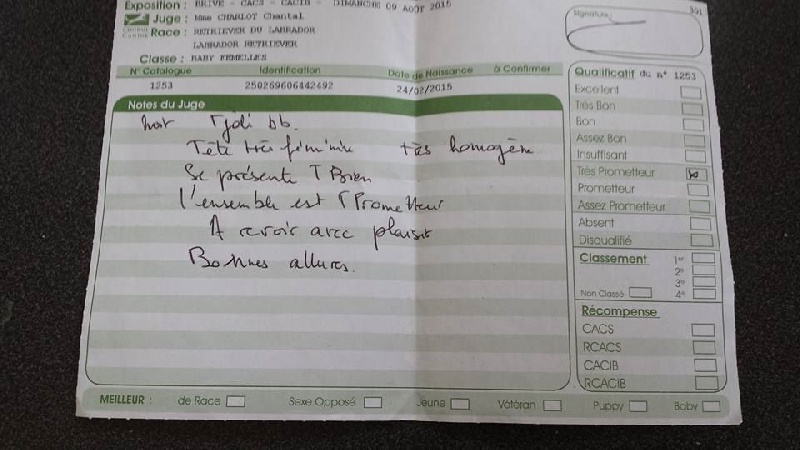 Exposition : BRIVE - CACS - CACIB - DIMANCHE 09 AOUT 2015
Juge : Mme CHARLOT Chantal
Race : RETRIEVER DU LABRADOR
LABRADOR RETRIEVER
Classe : BABY FEMELLES
N° Catalogue Identification Date de Naissance à Confirmer
1253 250269606442492 24/02/2015
Notes du Juge
Noir T joli bb.
Tête très féminine très homogène
Se présente T Bien
l'ensemble est T Prometteur
A revoir avec plaisir
Bonnes allures.
Signature :
Qualificatif du n° 1253
Excellent
Très Bon
Bon
Assez Bon
Insuffisant
Très Prometteur
Prometteur
Assez Prometteur
Absent
Disqualifié
Classement 1er
2e
3e
Non Classé 4e
Récompense
CACS
RCACS
CACIB
RCACIB
MEILLEUR : de Race Sexe Opposé Jeune Vétéran Puppy Baby